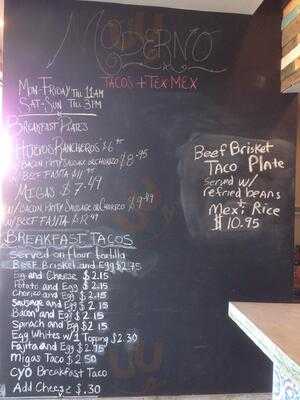 MODERNO
TACOS + TEX MEX
MON-FRIDAY Thu 11AM
SAT-SUN Thu 3PM
BREAKFAST PLATES
HUEVOS RANCHEROS $6
W/ BACON PATTY SAUSAGE OR CHORIZO $8.95
W/ BEEF FAJITA
MIGAS $7.49
W/ BACON PATTY SAUSAGE OR CHORIZO $9.49
W/ BEEF FAJITA $12.49
BREAKFAST TACOS
Served on flour tortilla
Beef Brisket and Egg $2.75
Egg and Cheese $2.15
Potato and Egg $2.15
Chorizo and Egg $2.15
Sausage and Egg $2.15
Bacon and Egg $2.15
Spinach and Egg $2.15
Egg Whites w/1 Topping $2.30
Fajita and Egg $2.75
Migas Taco $2.50
CYO Breakfast Taco
Add Cheese $.30
Beef Brisket
TACO Plate
Served w/
refried beans
+
Mexi Rice
$10.95